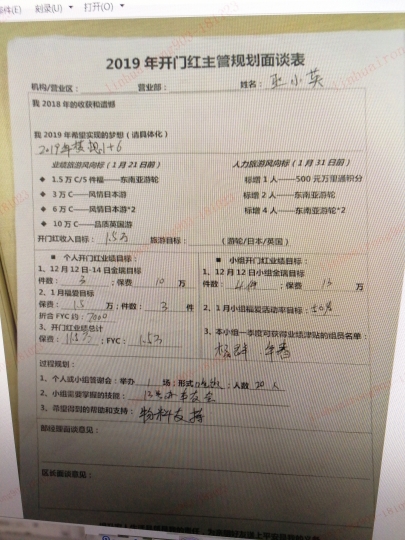 文件(E)  刻录(U)  打开(O)
2019 年开门红主管规划面谈表
机构/营业区：  营业部：  姓名：
我 2018 年的收获和遗憾
我 2019 年希望实现的梦想（请具体化）
业绩旅游风向标（1 月 21 日前）  人力旅游风向标（1 月 31 日前）
◆ 1.5 万 C/5 件福——东南亚游轮  标增 1 人——500 元万里通积分
◆ 3 万 C——风情日本游  标增 2 人——东南亚游轮
◆ 6 万 C——风情日本游*2  标增 4 人——东南亚游轮*2
◆ 10 万 C——品质英国游
开门红收入目标：1.5万  旅游目标：  （游轮/日本/英国）
■ 个人开门红业绩目标：  ■ 小组开门红业绩目标：
1、12 月 12 日-14 日金瑞目标  1、12 月 12 日小组金瑞目标
件数：3 ；保费 10 万  件数：4件 ；保费 13 万
2、1 月福爱目标  2、1 月小组福爱活动率目标：
保费：1.5 万；件数：3 件
折合 FYC 约：7000  3、本小组一季度可获得业绩津贴的组员名单：
3、开门红业绩总计
保费：11.5万 ；FYC：1.5万
过程规划：
1、个人或小组答谢会：举办 1 场；形式 ；人数 20 人
2、小组需要掌握的技能：
3、希望得到的帮助和支持：物料支持
部经理面谈意见：
区长面谈意见：